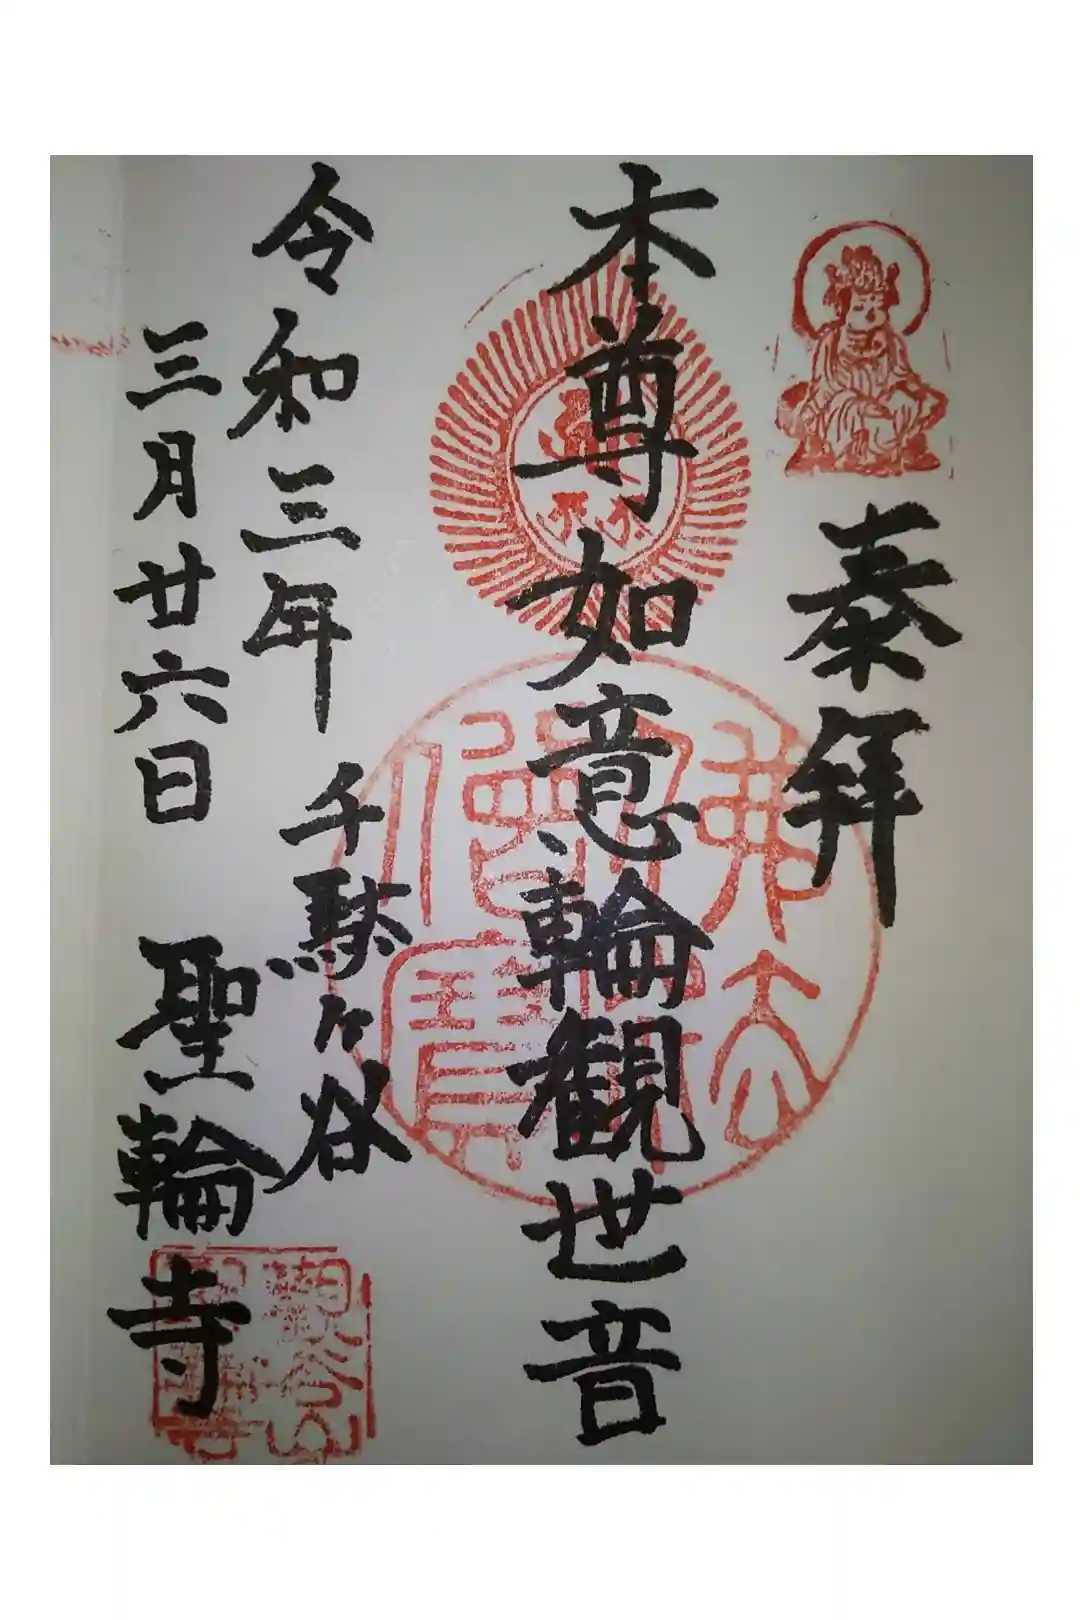 奉拜
本尊如意輪観世音
令和三年
三月廿六日
千駄ヶ谷
聖輪寺
佛法僧寶